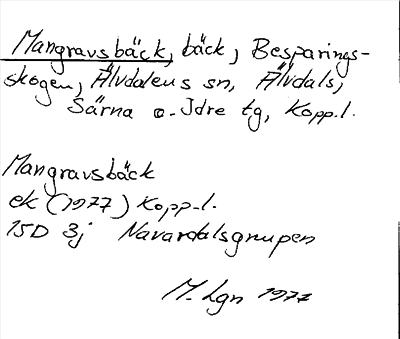 Mangravsbäck, bäck, Besparings-
skogen, Älvdalens sn, Älvdals,
Särna o. Idre tg, Kopp.l.
Mangravsbäck
ek (1977) Kopp.l.
15D 3j Navardalsgnupen
M. Lgn 1977